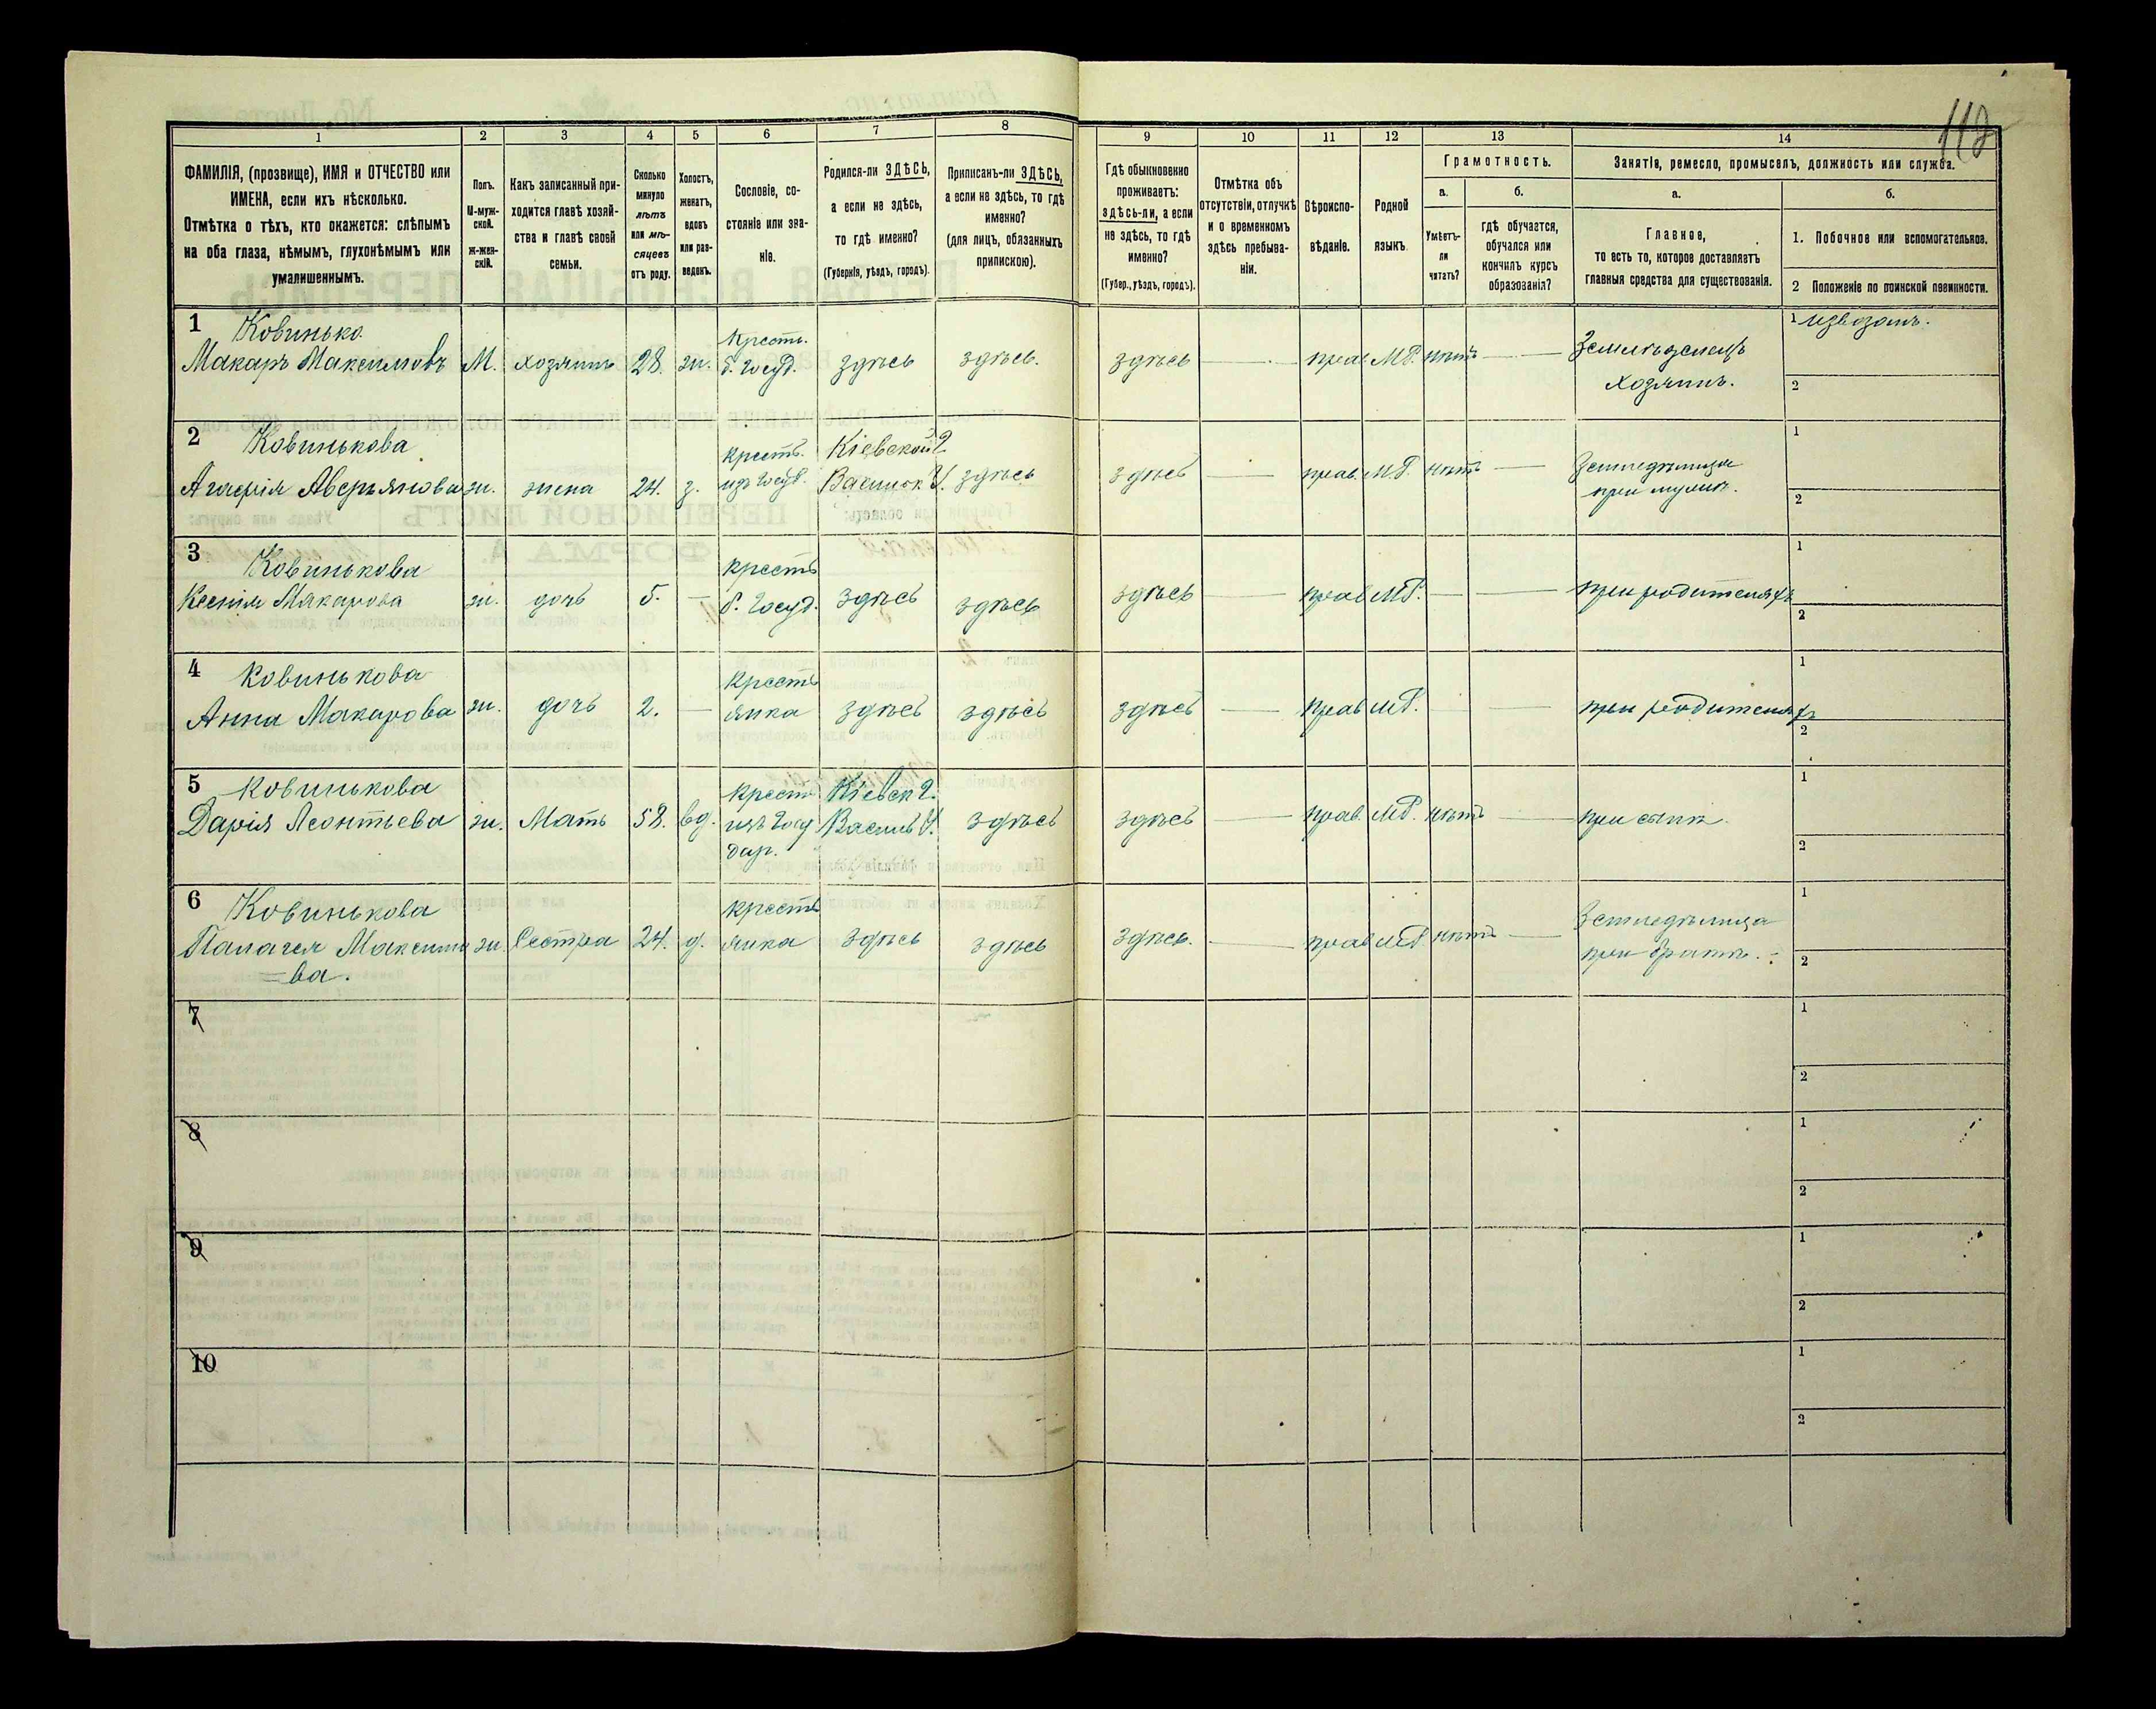 112
1
2
3
4
5
6
7
8
9
10
11
12
13
14
ФАМИЛІЯ, (прозвище), ИМЯ и ОТЧЕСТВО или
ИМЕНА, если ихъ нѣсколько.
Отмѣтка о тѣхъ, кто окажется: слѣпымъ
на оба глаза, нѣмымъ, глухонѣмымъ или
умалишеннымъ.
Полъ.
М-муж-
ской.
Ж-жен-
скій.
Какъ записанный при-
ходится главѣ хозяй-
ства и главѣ своей
семьи.
Сколько
минуло
лѣтъ
или мѣ-
сяцевъ
отъ роду.
Холостъ,
женатъ,
вдовъ
или раз-
веденъ.
Сословіе, со-
стояніе или зва-
ніе.
Родился-ли ЗДѢСЬ,
а если не здѣсь,
то гдѣ именно?
(Губернія, уѣздъ, городъ).
Приписанъ-ли ЗДѢСЬ,
а если не здѣсь, то гдѣ
именно?
(для лицъ, обязанныхъ
припискою).
Гдѣ обыкновенно
проживаетъ:
здѣсь-ли, а если
не здѣсь, то гдѣ
именно?
(Губер., уѣздъ, городъ).
Отмѣтка объ
отсутствіи, отлучкѣ
и о временномъ
здѣсь пребыва-
ніи.
Вѣроиспо-
вѣданіе.
Родной
языкъ.
Грамотность.
а.
Умѣетъ-
ли
читать?
б.
гдѣ обучается,
обучался или
кончилъ курсъ
образованія?
Занятіе, ремесло, промыселъ, должность или служба.
а.
Главное,
то есть то, которое доставляетъ
главныя средства для существованія.
б.
1. Побочное или вспомогательное.
2 Положеніе по воинской повинности.
1 Ковинько
Макаръ Максимовъ М. хозяинъ 28. ж. Крест. б. Госуд. здѣсь здѣсь. здѣсь — прав МР. нѣтъ — Земледѣлецъ
хозяинъ.
1 Извозомъ.
2
2 Ковинькова
Агафія Аверьянова ж. жена 24. з. крест. изъ Госуд. Кіевской Г
Васильк У. здѣсь здѣсь — прав. МР. нѣтъ — Земледѣлица
при мужѣ.
1
2
3 Ковинькова
Ксенія Макарова ж. дочь 5. — крест б. Госуд. здѣсь здѣсь здѣсь — прав МР. — — при родителяхъ
1
2
4 Ковинькова
Анна Макарова ж. дочь 2. — крестъ
янка здѣсь здѣсь здѣсь — прав МР. — — при родителяхъ
1
2
5 Ковинькова
Дарія Леонтьева ж. Мать 58. вд. крест
изъ Госу
дар. Кіевск Г.
Васильк У. здѣсь здѣсь — прав. МР. нѣтъ — при сынѣ.
1
2
6 Ковинькова
Палагея Максимо
=ва. ж. Сестра 24. д. крестъ
янка здѣсь здѣсь здѣсь. — прав МР нѣтъ — Земледѣлица
при братѣ.
1
2
7
1
2
8
1
2
9
1
2
10
1
2